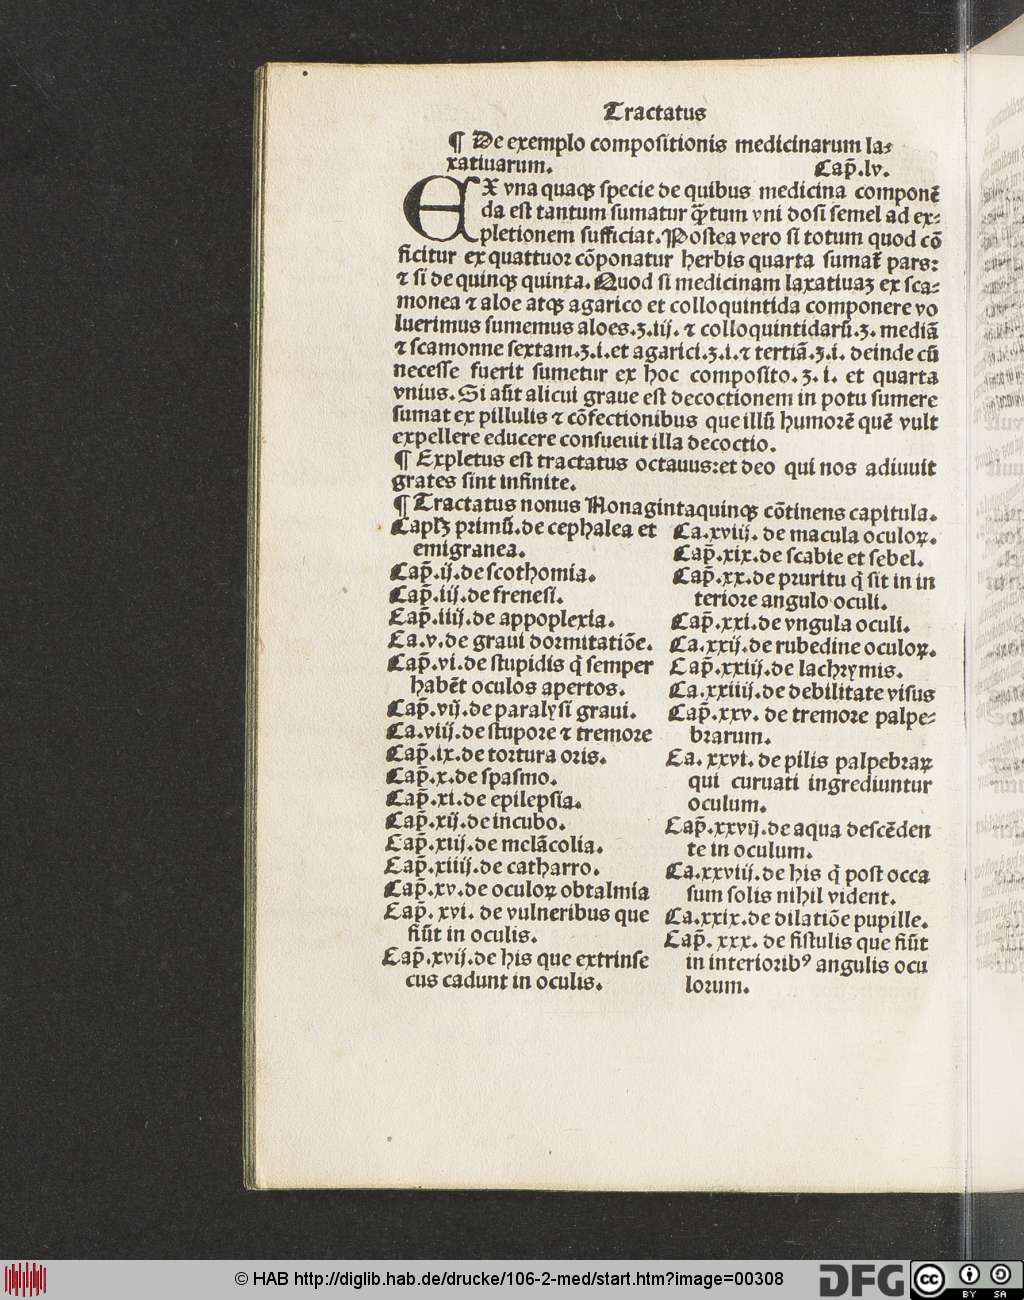 Tractatus
¶ De exemplo compositionis medicinarum la⸗
xatiuarum. Cap̃.lv.
EX vna quaqꝫ specie de quibus medicina componẽ
da est tantum sumatur q̃tum vni dosi semel ad ex⸗
pletionem sufficiat. Postea vero si totum quod cõ
ficitur ex quattuor cõponatur herbis quarta sumat̃ pars:
⁊ si de quinqꝫ quinta. Quod si medicinam laxatiuaꝫ ex sca⸗
monea ⁊ aloe atqꝫ agarico et colloquintida componere vo
luerimus sumemus aloes.ʒ.iij. ⁊ colloquintidarũ.ʒ. mediã
⁊ scamonne sextam.ʒ.i.et agarici.ʒ.i.⁊ tertiã.ʒ.i. deinde cũ
necesse fuerit sumetur ex hoc composito.ʒ.i. et quarta
vnius. Si aũt alicui graue est decoctionem in potu sumere
sumat ex pillulis ⁊ cõfectionibus que illũ humorẽ quẽ vult
expellere educere consueuit illa decoctio.
¶ Expletus est tractatus octauus:et deo qui nos adiuuit
grates sint infinite.
¶ Tractatus nonus Nonagintaquinqꝫ cõtinens capitula.
Capĺꝫ primũ.de cephalea et
emigranea.
Cap̃.ij.de scothomia.
Cap̃.iij.de frenesi.
Cap̃.iiij.de appoplexia.
Ca.v.de graui dormitatiõe.
Cap̃.vi.de stupidis q̃ semper
habẽt oculos apertos.
Cap̃.vij.de paralysi graui.
Ca.viij.de stupore ⁊ tremore
Cap̃.ix.de tortura oris.
Cap̃.x.de spasmo.
Cap̃.xi.de epilepsia.
Cap̃.xij.de incubo.
Cap̃.xiij.de melãcolia.
Cap̃.xiiij.de catharro.
Cap̃.xv.de oculoꝝ obtalmia
Cap̃.xvi.de vulneribus que
fiũt in oculis.
Cap̃.xvij.de his que extrinse
cus cadunt in oculis.
Ca.xviij. de macula oculoꝝ.
Cap̃.xix.de scabie et sebel.
Cap̃.xx.de pruritu q̃ sit in in
teriore angulo oculi.
Cap̃.xxi.de vngula oculi.
Ca.xxij.de rubedine oculoꝝ.
Cap̃.xxiij.de lachrymis.
Ca.xxiiij.de debilitate visus
Cap̃.xxv. de tremore palpe⸗
brarum.
Ca.xxvi.de pilis palpebraꝝ
qui curuati ingrediuntur
oculum.
Cap̃.xxvij.de aqua descẽden
te in oculum.
Ca.xxviij.de his q̃ post occa
sum solis nihil vident.
Ca.xxix.de dilatiõe pupille.
Cap̃.xxx.de fistulis que fiũt
in interioribꝰ angulis ocu
lorum.
© HAB http://diglib.hab.de/drucke/106-2-med/start.htm?image=00308
DFG
cc BY SA